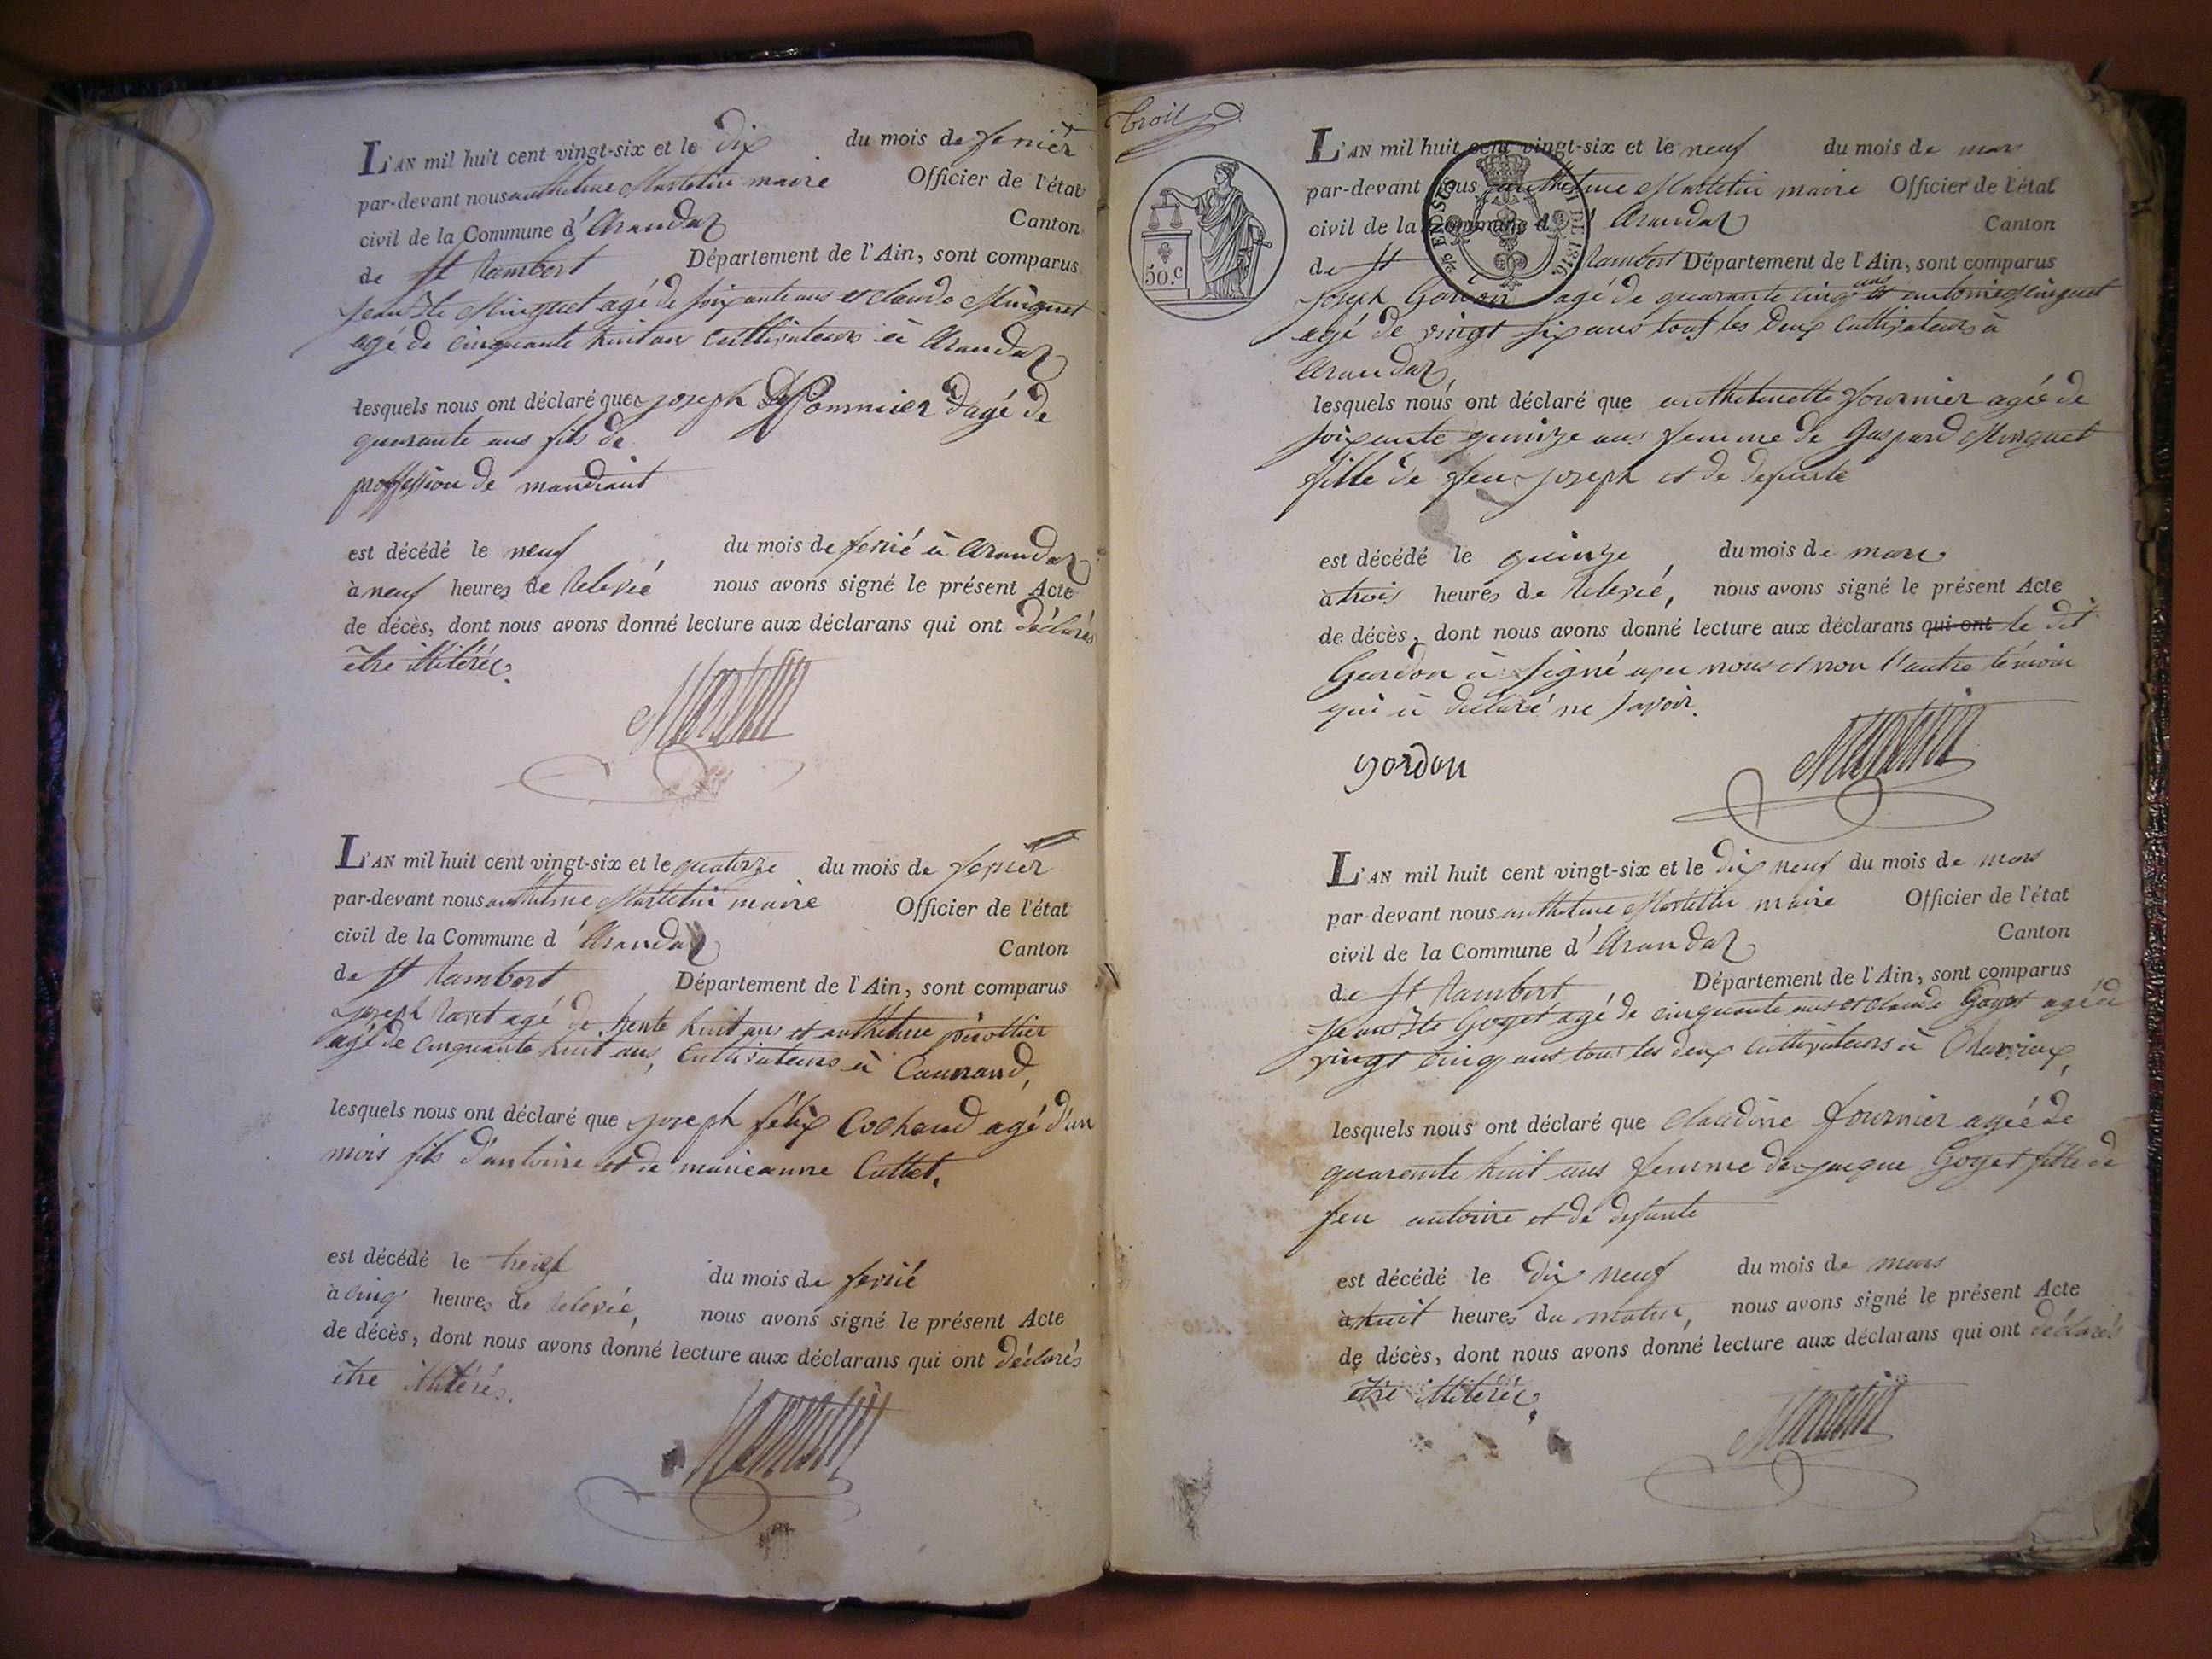 L'AN mil huit cent vingt-six et le dix du mois de fevrier
par-devant nous anthelme Martelin maire Officier de l'état
civil de la Commune d'Arandaz Canton
de St Rambert Département de l'Ain, sont comparus
jean Bte Minguet agé de soixante ans et claude Minguet
agé de cinquante huit ans cultivateurs à Arandaz
lesquels nous ont déclaré que joseph Pommier agé de
quarante ans fils de
proffession de mandiant
est décédé le neuf du mois de fevrié à Arandaz
à neuf heures de relevée nous avons signé le présent Acte
de décès, dont nous avons donné lecture aux déclarans qui ont déclarés
être illitérés.
Martelin
L'AN mil huit cent vingt-six et le quatorze du mois de fevrier
par-devant nous anthelme Martelin maire Officier de l'état
civil de la Commune d'Arandaz Canton
de St Rambert Département de l'Ain, sont comparus
joseph agé de trente huit ans et anthelme
agé de cinquante huit ans, cultivateurs à
lesquels nous ont déclaré que joseph félix Cochand agé d'un
mois fils d'antoine et de marieanne Cattet.
est décédé le treize du mois de fevrié
à cinq heures de relevée, nous avons signé le présent Acte
de décès, dont nous avons donné lecture aux déclarans qui ont déclarés
être illitérés.
Martelin
trois
50.c
L'AN mil huit cent vingt-six et le neuf du mois de mars
par-devant nous anthelme Martelin maire Officier de l'état
civil de la Commune d'Arandaz Canton
de St Rambert Département de l'Ain, sont comparus
joseph Gordon agé de quarante cinq ans et antoine Minguet
agé de vingt six ans tous les deux cultivateurs à
Arandaz,
lesquels nous ont déclaré que anthelmette fournier agée de
soixante quinze ans femme de Gaspard Minguet
fille de feu joseph et de defunte
est décédé le quinze, du mois de mars
à trois heures de relevée, nous avons signé le présent Acte
de décès, dont nous avons donné lecture aux déclarans qui ont le dit
Gordon à signé avec nous et non l'autre témoin
qui à déclaré ne savoir.
gordon Martelin
L'AN mil huit cent vingt-six et le dix neuf du mois de mars
par-devant nous anthelme Martelin maire Officier de l'état
civil de la Commune d'Arandaz Canton
de St Rambert Département de l'Ain, sont comparus
jean Bte Goyet agé de cinquante ans et claude Goyet agé de
vingt cinq ans tous les deux cultivateurs à
lesquels nous ont déclaré que claudine fournier agée de
quarante huit ans femme de jacque Goyet fille de
feu antoine et de defunte
est décédé le dix neuf du mois de mars
à huit heures du matin, nous avons signé le présent Acte
de décès, dont nous avons donné lecture aux déclarans qui ont déclarés
être illitérés.
Martelin